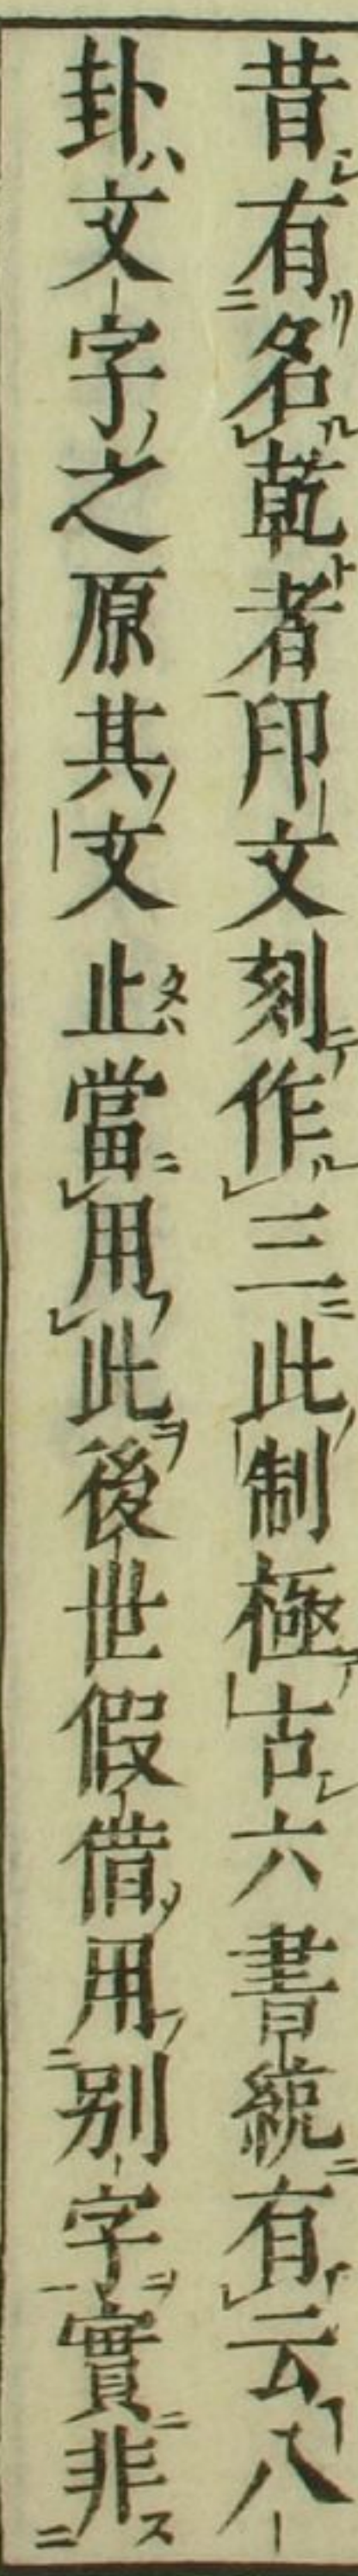 昔有名乾者印文刻作三此制極古六書統有云八
卦文字之原其文止當用此後世假借用别字實非